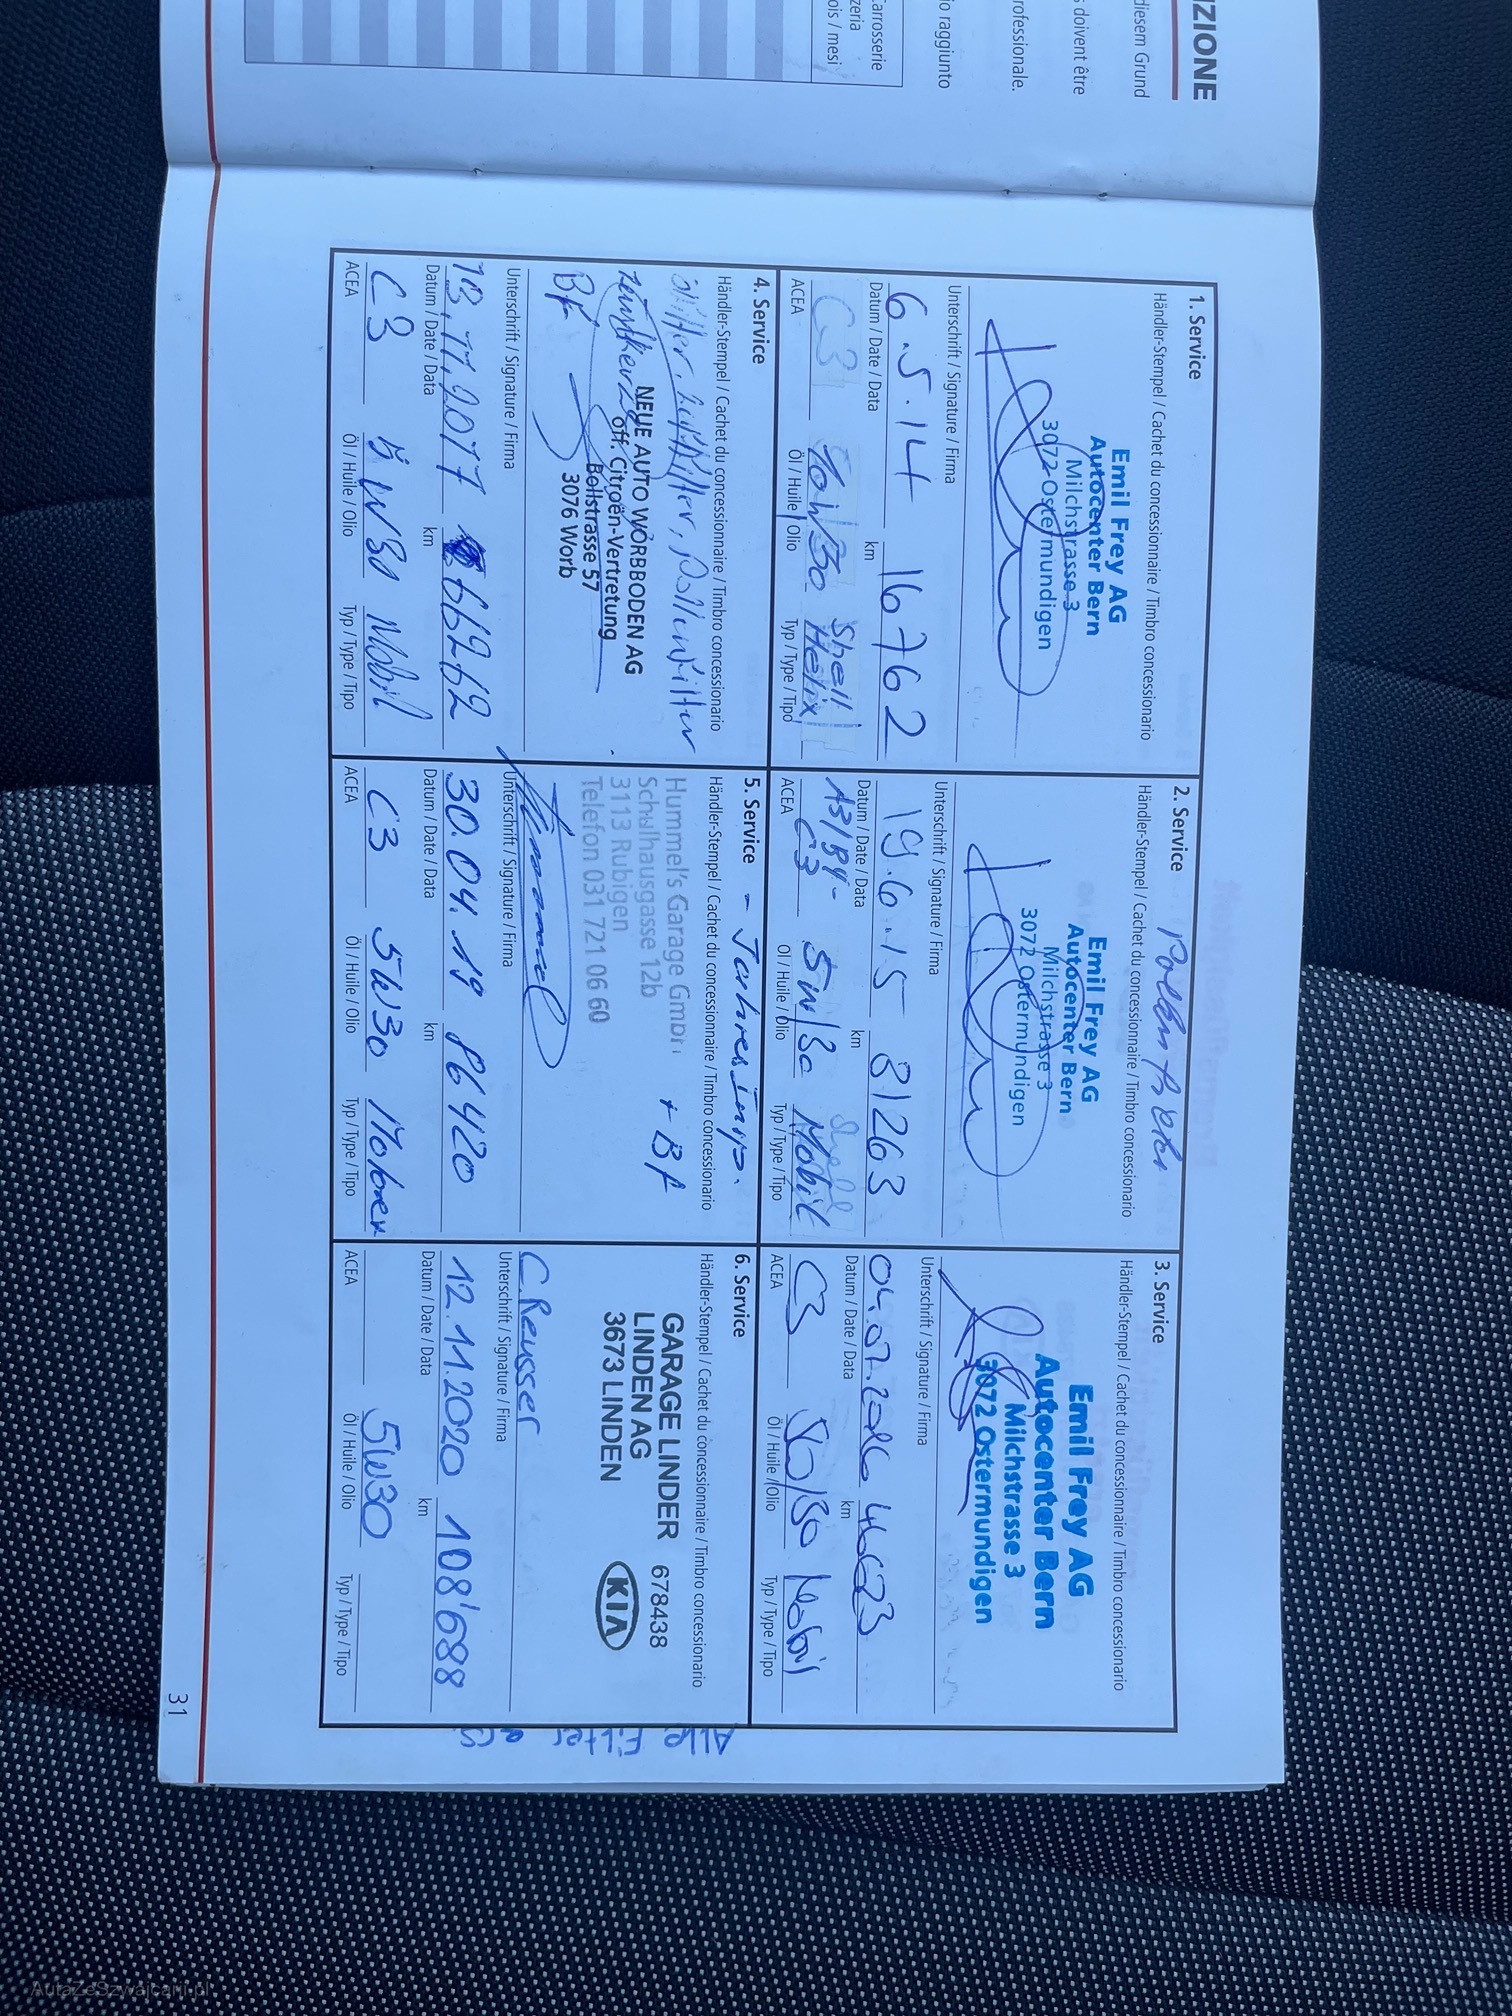 IZIONE
diesem Grund
s doivent être
rofessionale.
io raggiunto
Carrosserie
zeria
ois / mesi
1. Service
Händler-Stempel / Cachet du concessionnaire / Timbro concessionario
Emil Frey AG
Autocenter Bern
Milchstrasse 3
3072 Ostermundigen
Unterschrift / Signature / Firma
6.5.14 16762
Datum / Date / Data km
C3 Shell Helix
ACEA Öl / Huile / Olio Typ / Type / Tipo
2. Service
Händler-Stempel / Cachet du concessionnaire / Timbro concessionario
Emil Frey AG
Autocenter Bern
Milchstrasse 3
3072 Ostermundigen
Unterschrift / Signature / Firma
19.6.15 31263
Datum / Date / Data km
C3 5W/30 Mobil
ACEA Öl / Huile / Olio Typ / Type / Tipo
3. Service
Händler-Stempel / Cachet du concessionnaire / Timbro concessionario
Emil Frey AG
Autocenter Bern
Milchstrasse 3
3072 Ostermundigen
Unterschrift / Signature / Firma
04.07.2016 46623
Datum / Date / Data km
C3 Mobil
ACEA Öl / Huile / Olio Typ / Type / Tipo
4. Service
Händler-Stempel / Cachet du concessionnaire / Timbro concessionario
Ölfilter, Luftfilter, Pollenfilter
Zündkerzen
BF
NEUE AUTO WORBBODEN AG
off. Citroën-Vertretung
Bollstrasse 57
3076 Worb
Unterschrift / Signature / Firma
13.11.2017 66262
Datum / Date / Data km
C3 5W30 Mobil
ACEA Öl / Huile / Olio Typ / Type / Tipo
5. Service - Jahresinsp.
Händler-Stempel / Cachet du concessionnaire / Timbro concessionario
+ BF
Hummel's Garage GmbH
Schulhausgasse 12b
3113 Rubigen
Telefon 031 721 06 60
Unterschrift / Signature / Firma
30.04.19 86420
Datum / Date / Data km
C3 5W30
ACEA Öl / Huile / Olio Typ / Type / Tipo
6. Service
Händler-Stempel / Cachet du concessionnaire / Timbro concessionario
GARAGE LINDER 678438
LINDEN AG
3673 LINDEN KIA
C. Reusser
Unterschrift / Signature / Firma
12.11.2020 108'688
Datum / Date / Data km
5W30
ACEA Öl / Huile / Olio Typ / Type / Tipo
Alle Filter
31
AutaZeSzwajcarii.pl